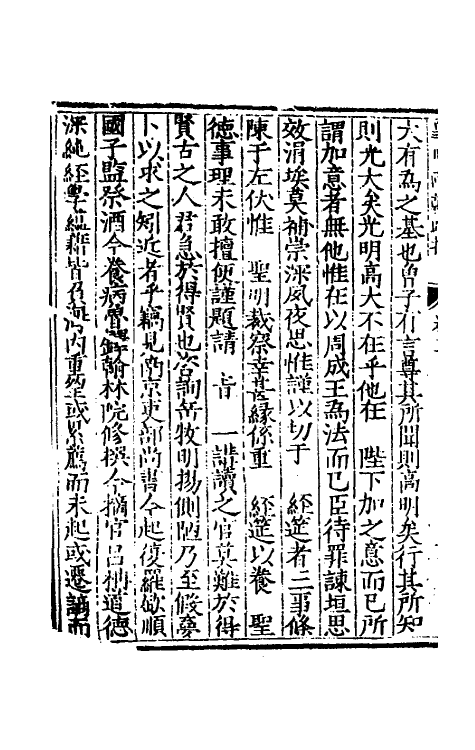 大有為之基也曾子有言尊其所聞則高明矣行其所知
則光大矣光明高大不在乎他在　陛下加之意而已所
謂加意者無他惟在以周成王為法而已臣待罪諫垣思
效涓埃莫補崇深夙夜思惟謹以切于　經筵者三事條
陳于左伏惟　聖明裁察幸甚緣係重　經筵以養　聖
德事理未敢擅便謹題請　旨　一講讀之官莫難於得
賢古之人君急於得賢也咨詢岳牧明揚側陋乃至假夢
卜以求之矧近者乎竊見南京吏部尚書今起復羅欽順
國子監祭酒今養病魯鐸翰林院修撰今擿官呂柟道德
深純經學蘊藉皆負海內重望或累薦而未起或遷謫而